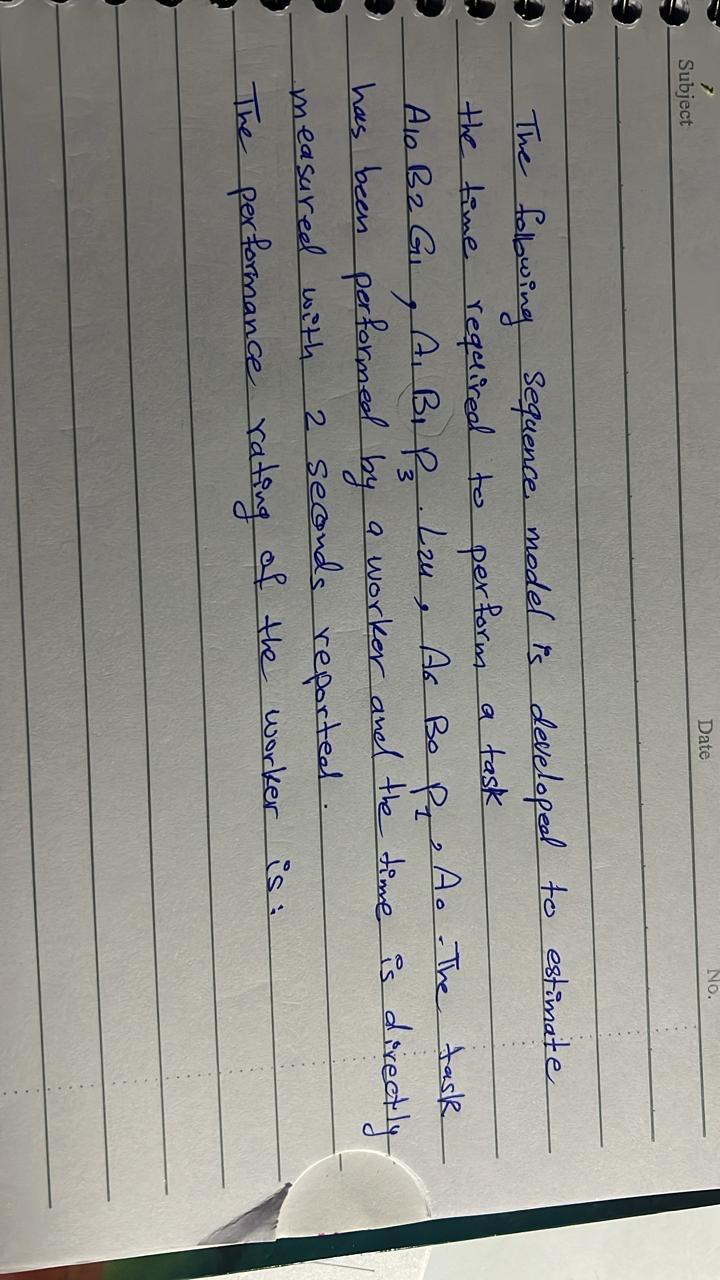 Subject
Date
No.
The following sequence model is developed to estimate
the time required to perform a task
A10 B2 G1 , A1 B1 P3 . L24 , A6 B0 P1 , A0 . The task
has been performed by a worker and the time is directly
measured with 2 seconds reported.
The performance rating of the worker is: